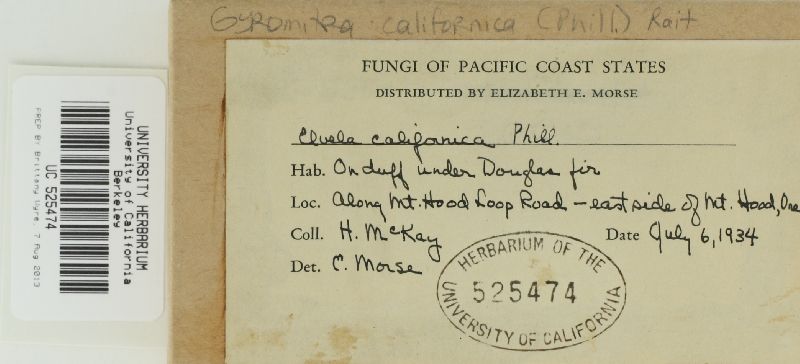 Gyromitra californica (Phill.) Rait
FUNGI OF PACIFIC COAST STATES
DISTRIBUTED BY ELIZABETH E. MORSE
Elvela californica Phill.
Hab. On duff under Douglas fir
Loc. Along Mt. Hood Loop Road - east side of Mt. Hood, Ore
Coll. H. McKay
Date July 6, 1934
Det. E. Morse
HERBARIUM OF THE
525474
UNIVERSITY OF CALIFORNIA
UNIVERSITY HERBARIUM
University of California
Berkeley
UC 525474
PREP BY Brittany Vyre, 7 Aug 2013